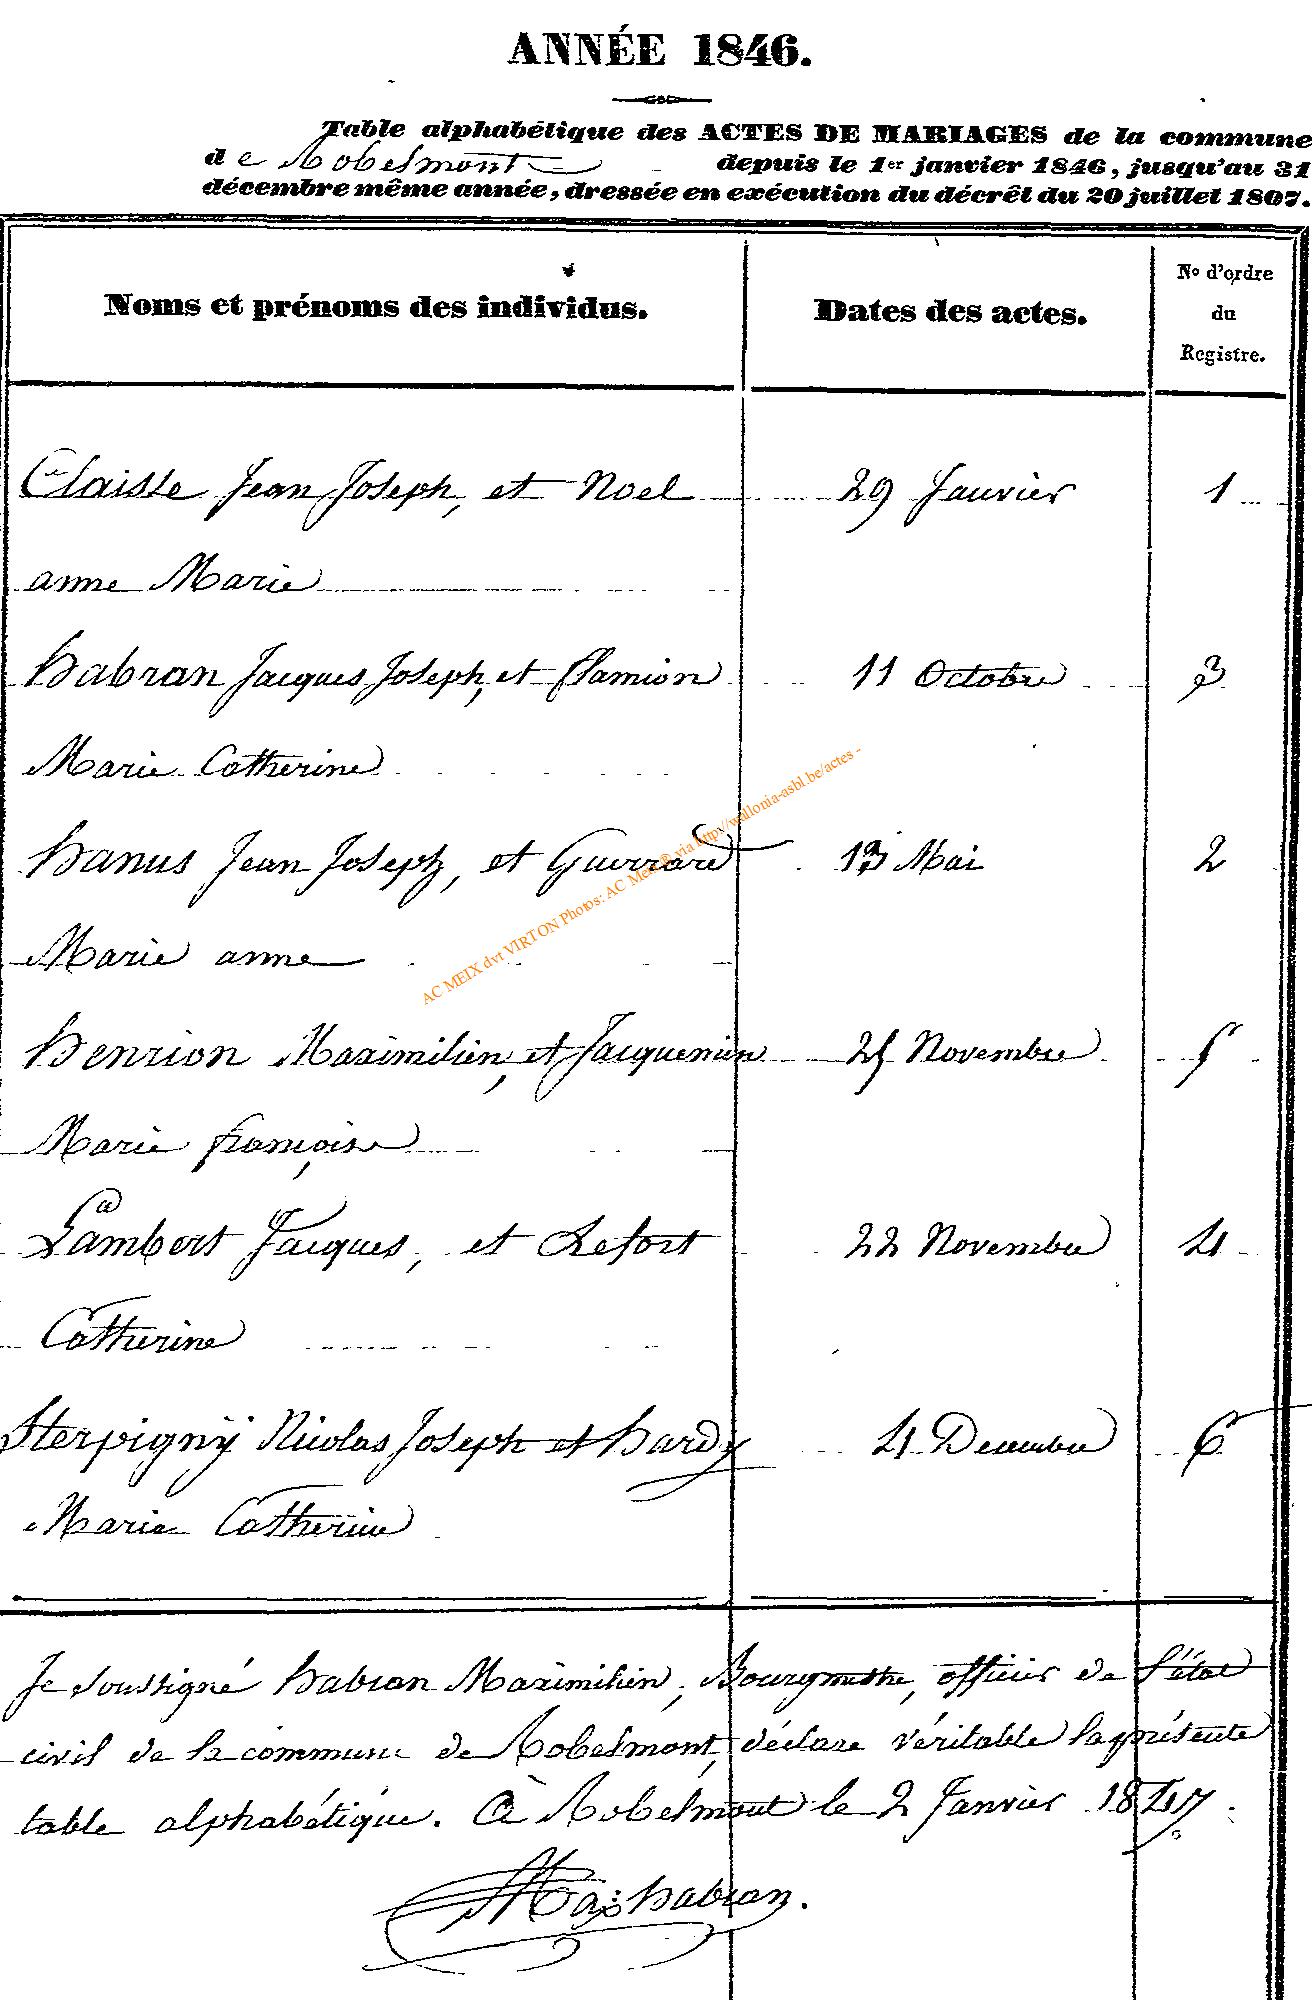 ANNÉE 1846.
Table alphabétique des ACTES DE MARIAGES de la commune
de Robelmont depuis le 1er janvier 1846, jusqu'au 31
décembre même année, dressée en exécution du décrêt du 20 juillet 1807.
Noms et prénoms des individus. Dates des actes. No d'ordre du Registre.
Claisse Jean Joseph, et Noel 29 Janvier 1
anne Marie
Habran Jacques Joseph, et Flamion 11 Octobre 3
Marie Catherine
Hanus Jean Joseph, et Guerrard 13 Mai 2
Marie anne
Henrion Maximilien, et Jacquemin 25 Novembre 5
Marie françoise
Lambert Jacques, et Lefort 22 Novembre 4
Catherine
Sterpigny Nicolas Joseph et Hardy 4 Decembre 6
Marie Catherine
Je soussigné Habran Maximilien, Bourgmestre, officier de l'état
civil de la commune de Robelmont, déclare véritable la présente
table alphabétique. À Robelmont le 2 Janvier 1847.
Max Habran.
AC MEIX dvt VIRTON Photos: AC Meix® via http://wallonia-asbl.be/actes -